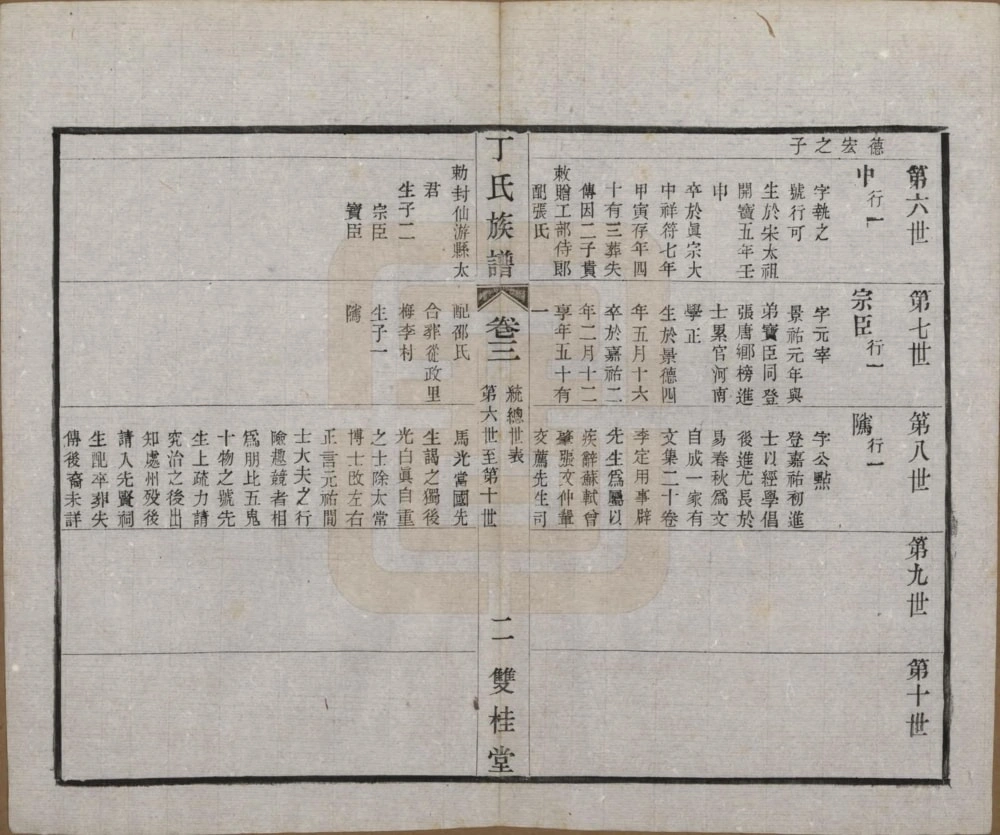 第六世
德宏之子
中行一
字執之
號行可
生於宋太祖
開寶五年壬
申
卒於眞宗大
中祥符七年
甲寅存年四
十有三葬失
傳因二子貴
敕贈工部侍郎
配張氏
勅封仙游縣太
君
生子二
宗臣
寶臣
第七世
宗臣行一
字元宰
景祐元年與
弟寶臣同登
張唐鄉榜進
士累官河南
學正
生於景德四
年五月十六
卒於嘉祐二
年二月十二
享年五十有
一
配邵氏
合葬從政里
梅李村
生子一
隲
第八世
隲行一
字公點
登嘉祐初進
士以經學倡
後進尤長於
易春秋爲文
自成一家有
文集二十卷
李定用事辟
先生爲屬以
疾辭蘇軾曾
肇張文仲輩
交薦先生司
馬光當國先
生謁之獨後
光白眞自重
之士除太常
博士改左右
正言元祐間
士大夫之行
險趣競者相
爲朋比五鬼
十物之號先
生上疏力請
究治之後出
知處州歿後
請入先賢祠
生配卒葬失
傳後裔未詳
第九世
第十世
丁氏族譜
卷三
統總世表
第六世至第十世
二
雙桂堂